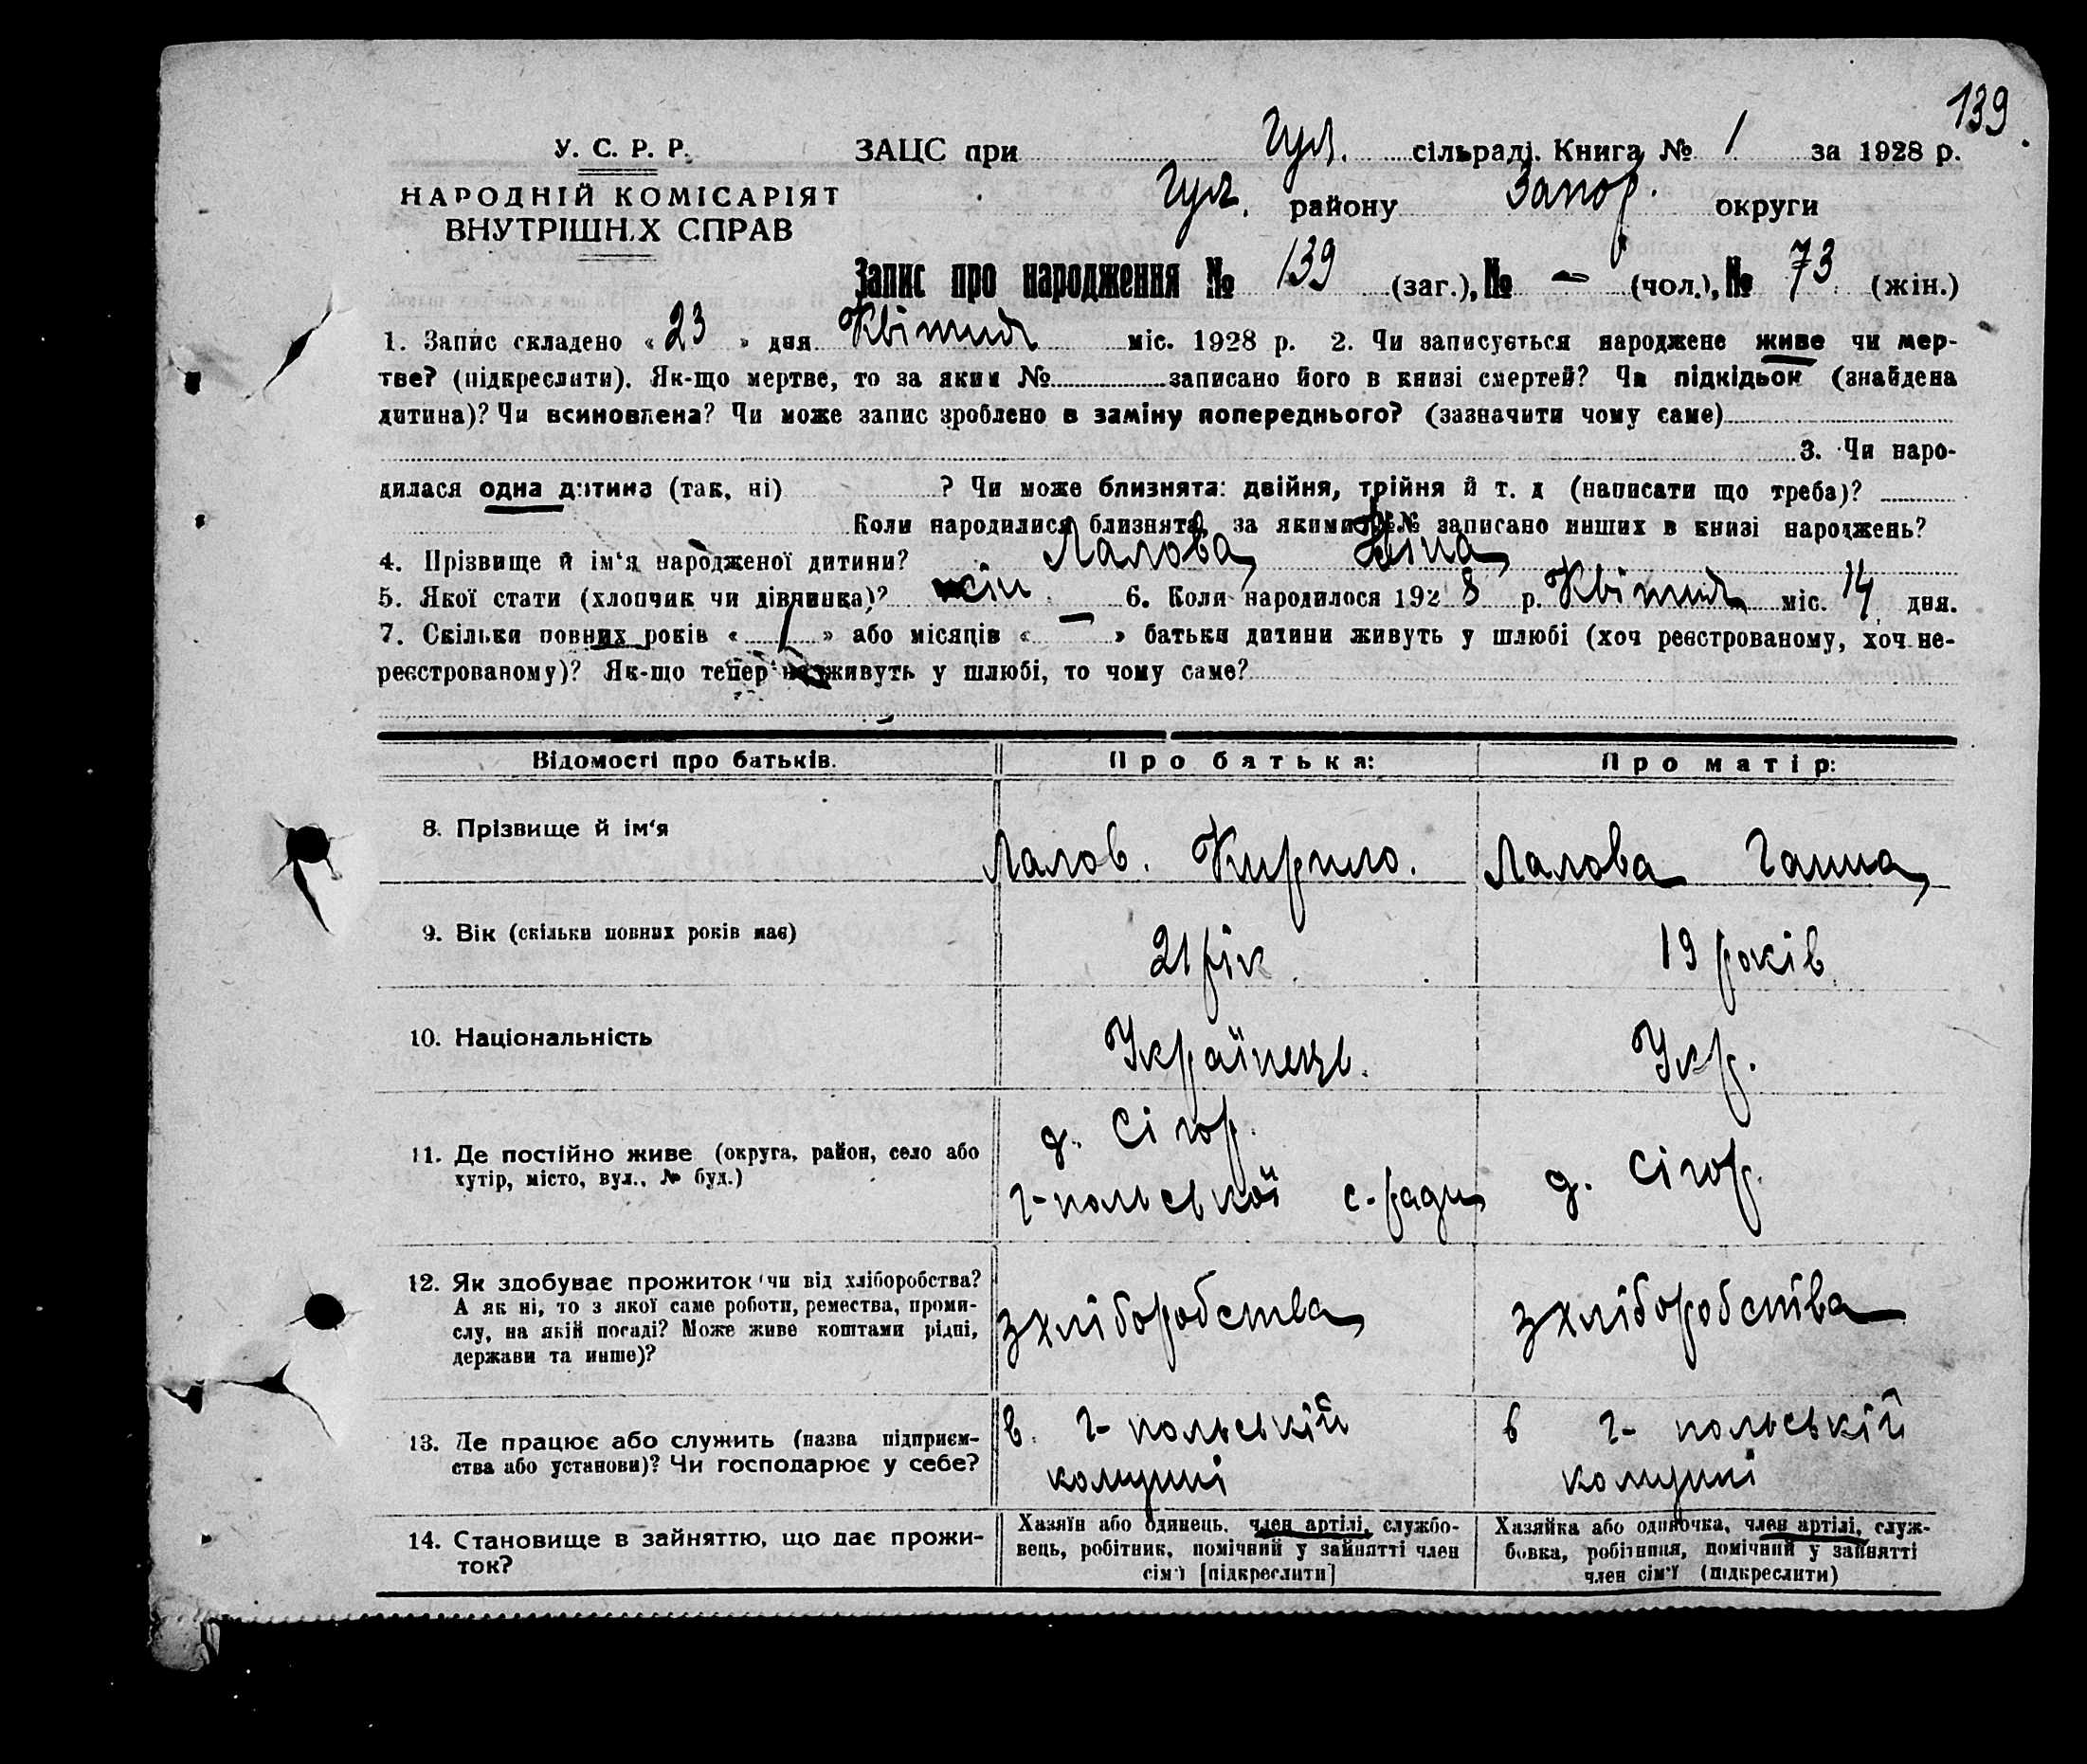 139
У. С. Р. Р.
НАРОДНІЙ КОМІСАРІЯТ
ВНУТРІШН.Х СПРАВ
ЗАЦС при Гул. сільраді. Книга № 1 за 1928 р.
Гул. району Запор. округи
Запис про народження № 139 (заг.), № — (чол.), № 73 (жін.)
1. Запис складено « 23 » дня Квітня міс. 1928 р. 2. Чи записується народжене живе чи мер-
тве? (підкреслити). Як-що мертве, то за яким № записано його в книзі смертей? Чи підкідьок (знайдена
дитина)? Чи всиновлена? Чи може запис зроблено в заміну попереднього? (зазначити чому саме)
3. Чи наро-
дилася одна дитина (так, ні) ? Чи може близнята: двійня, трійня й т. д (написати що треба)?
Коли народилися близнята, за якими №№ записано инших в книзі народжень?
4. Прізвище й ім‘я народженої дитини? Лалова Ніна
5. Якої стати (хлопчик чи дівчинка)? жін 6. Коли народилося 1928 р. Квітня міс. 14 дня.
7. Скільки повних років « 1 » або місяців « — » батьки дитини живуть у шлюбі (хоч реєстрованому, хоч не-
реєстрованому)? Як-що тепер не живуть у шлюбі, то чому саме?
Відомості про батьків. Про батька: Про матір:
8. Прізвище й ім‘я Лалов. Кирило. Лалова Ганна
9. Вік (скільки повних років має) 21 рік. 19 років
10. Національність Українець. Укр.
11. Де постійно живе (округа, район, село або
хутір, місто, вул., № буд.)
д. Сігор.
г-польської с-ради
д. Сігор.
12. Як здобуває прожиток чи від хліборобства?
А як ні, то з якої саме роботи, ремества, проми-
слу, на якій посаді? Може живе коштами рідні,
держави та инше)?
з хліборобства
з хліборобства
13. Де працює або служить (назва підприєм-
ства або установи)? Чи господарює у себе?
в. г-польській
комуні
в г-польській
комуні
14. Становище в зайняттю, що дає прожи-
ток?
Хазяїн або одинець, член артілі, службо-
вець, робітник, помічний у зайнятті член
сім‘ї [підкреслити]
Хазяйка або одиночка, член артілі, служ-
бовка, робітниця, помічний у зайнятті
член сім‘ї (підкреслити)